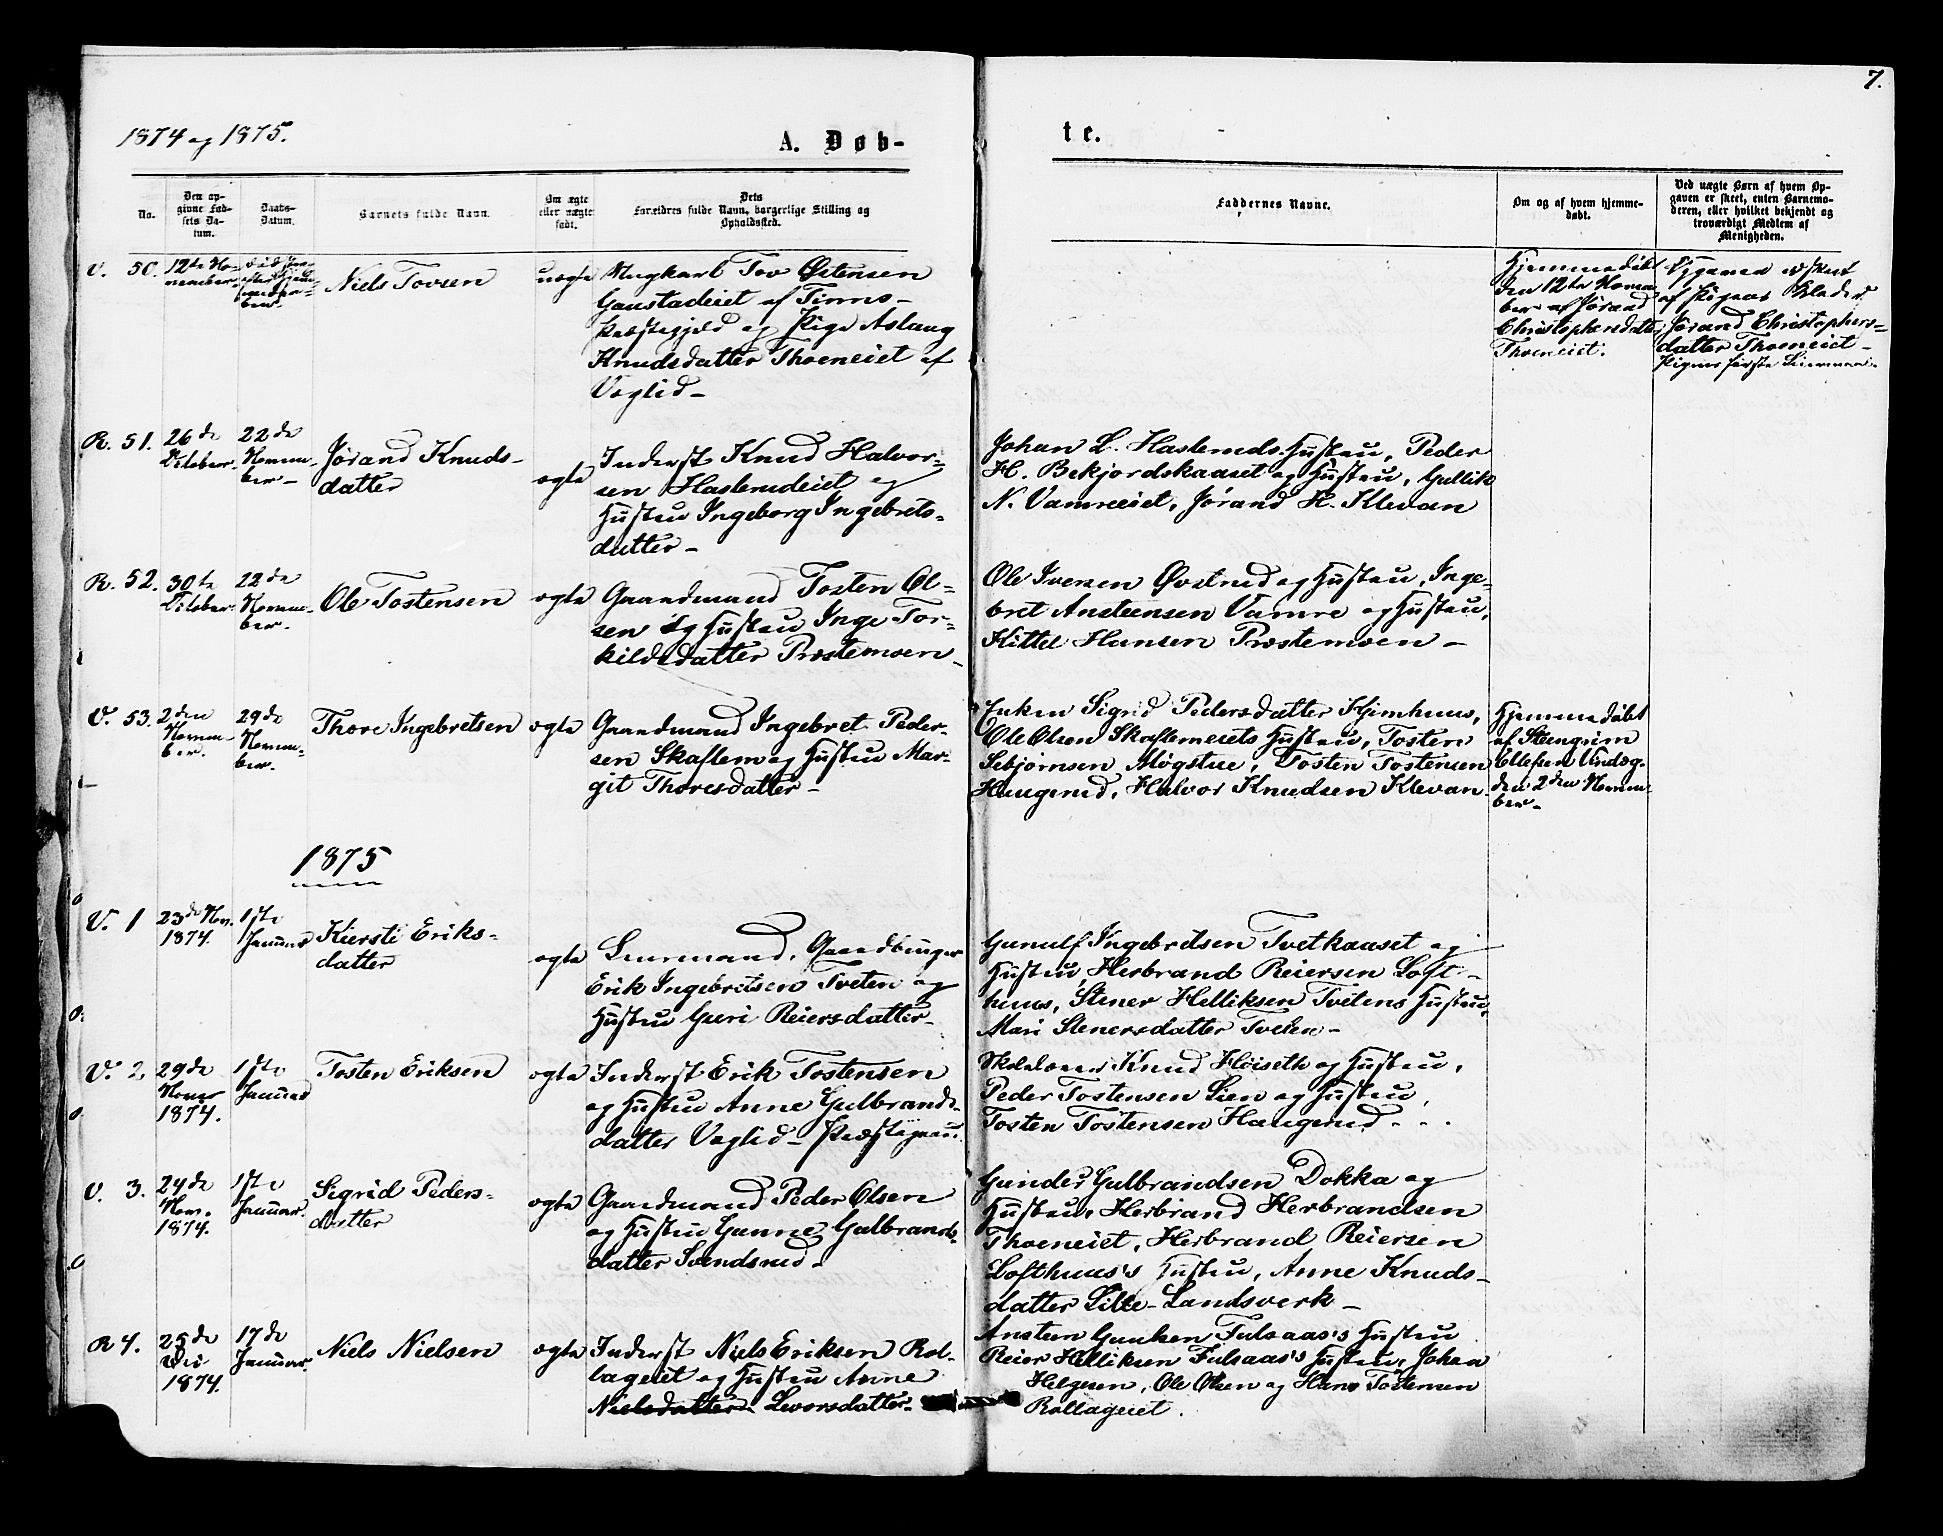 7.
1874 og 1875.
A. Døb-
te.
No.
Den op-
givne Fød-
sels Da-
tum.
Daabs-
Datum.
Barnets fulde Navn.
Om ægte
eller uægte
født.
Dets
Forældres fulde Navn, borgerlige Stilling og
Opholdssted.
Faddernes Navne.
Om og af hvem hjemme-
døbt.
Ved uægte Børn af hvem Op-
gaven er skeet, enten Barnemo-
deren, eller hvilket bekjendt og
troværdigt Medlem af
Menigheden.
V. 50.
12te No-
vember
Niels Tovsen
uægte
Ungkarl Tov Østensen
Gaustadeiet af Tinns
Præstegjeld og Pige Aslaug
Knudsdatter Thoeneiet af
Veglid-
Hjemmedøbt
den 12te Novem
ber af Jørand
Christophersdatter
Thoeneiet.
Opgaven er skeet
af Pigens Moder
Jørand Christophers-
datter Thoeneiet-
Pigens første Leiermaal.
R. 51.
26de
October.
22de
Novem-
ber-
Jørand Knuds-
datter
ægte
Inderst Knud Halvor-
sen Haslemdeiet og
Hustru Ingeborg Ingebrets-
datter-
Johan L. Haslemds Hustru, Peder
H. Bekjordskaaset og Hustru, Gullik
N. Vamreeiet, Jørand K. Klevan
R. 52.
30te
October
22de
Novem-
ber.
Ole Tostensen
ægte
Gaardmand Tosten Ol-
sen og Hustru Inge Tor-
kildsdatter Prestemoen-
Ole Iversen Øvstrud og Hustru, Inge-
bret Ansteensen Vamre og Hustru,
Kittel Hansen Prestemoen-
V. 53.
2den
Novem-
ber.
29de
Novem-
ber.
Thore Ingebretsen
ægte
Gaardmand Ingebret Peder-
sen Skaflem og Hustru Mar-
git Thoresdatter-
Enken Sigrid Pedersdatter Hjemhuus,
Ole Olsen Skaflemeiets Hustru, Tosten
Sebjørnsen Møgstue, Tosten Tostensen
Haugerud, Halvor Knudsen Klevan-
Hjemmedøbt
af Steengrim
Ellefsen Vindeg.
den 2den Novem-
ber-
1875
V. 1
23de Nov.
1874.
1ste
Januar
Kiersti Eriks-
datter
ægte
Lensmand, Gaardbruger
Erik Ingebretsen Tveten og
Hustru Guri Reiersdatter-
Gunulf Ingebretsen Tvetkaaset og
Hustru, Herbrand Reiersen Loft-
huus, Stener Helliksen Tvetens Hustru,
Mari Stenersdatter Tveten-
V. 2,
29de
Novbr
1874.
1ste
Januar
Tosten Eriksen
ægte
Inderst Erik Tostensen
og Hustru Anne Gulbrands-
datter Veglid-Præstegaard.
Skolelærer Knud Høiseth og Hustru,
Peder Tostensen Lien og Hustru,
Tosten Tostensen Haugerud...
V. 3.
24de
Nov.
1874.
1ste
Januar.
Sigrid Peders-
datter
ægte
Gaardmand Peder Olsen
og Hustru Gunne Gulbrands-
datter Svendsrud-
Gunder Gulbrandsen Dokka og
Hustru, Herbrand Herbrandsen
Thoeneiet, Herbrand Reiersen
Lofthuus's Hustru, Anne Knuds-
datter Lille-Landsverk-
R 4.
25de
Dec
1874.
17de
Januar.
Niels Nielsen
ægte
Inderst Niels Eriksen Rol-
lageiet og Hustru Anne
Nielsdatter. Levorsdatter.
Ansteen Gunksen Fulsaas's Hustru
Reier Helliksen Fulsaas's Hustru, Johan
Helgesen, Ole Olsen og Hans Tostensen
Rollageiet.